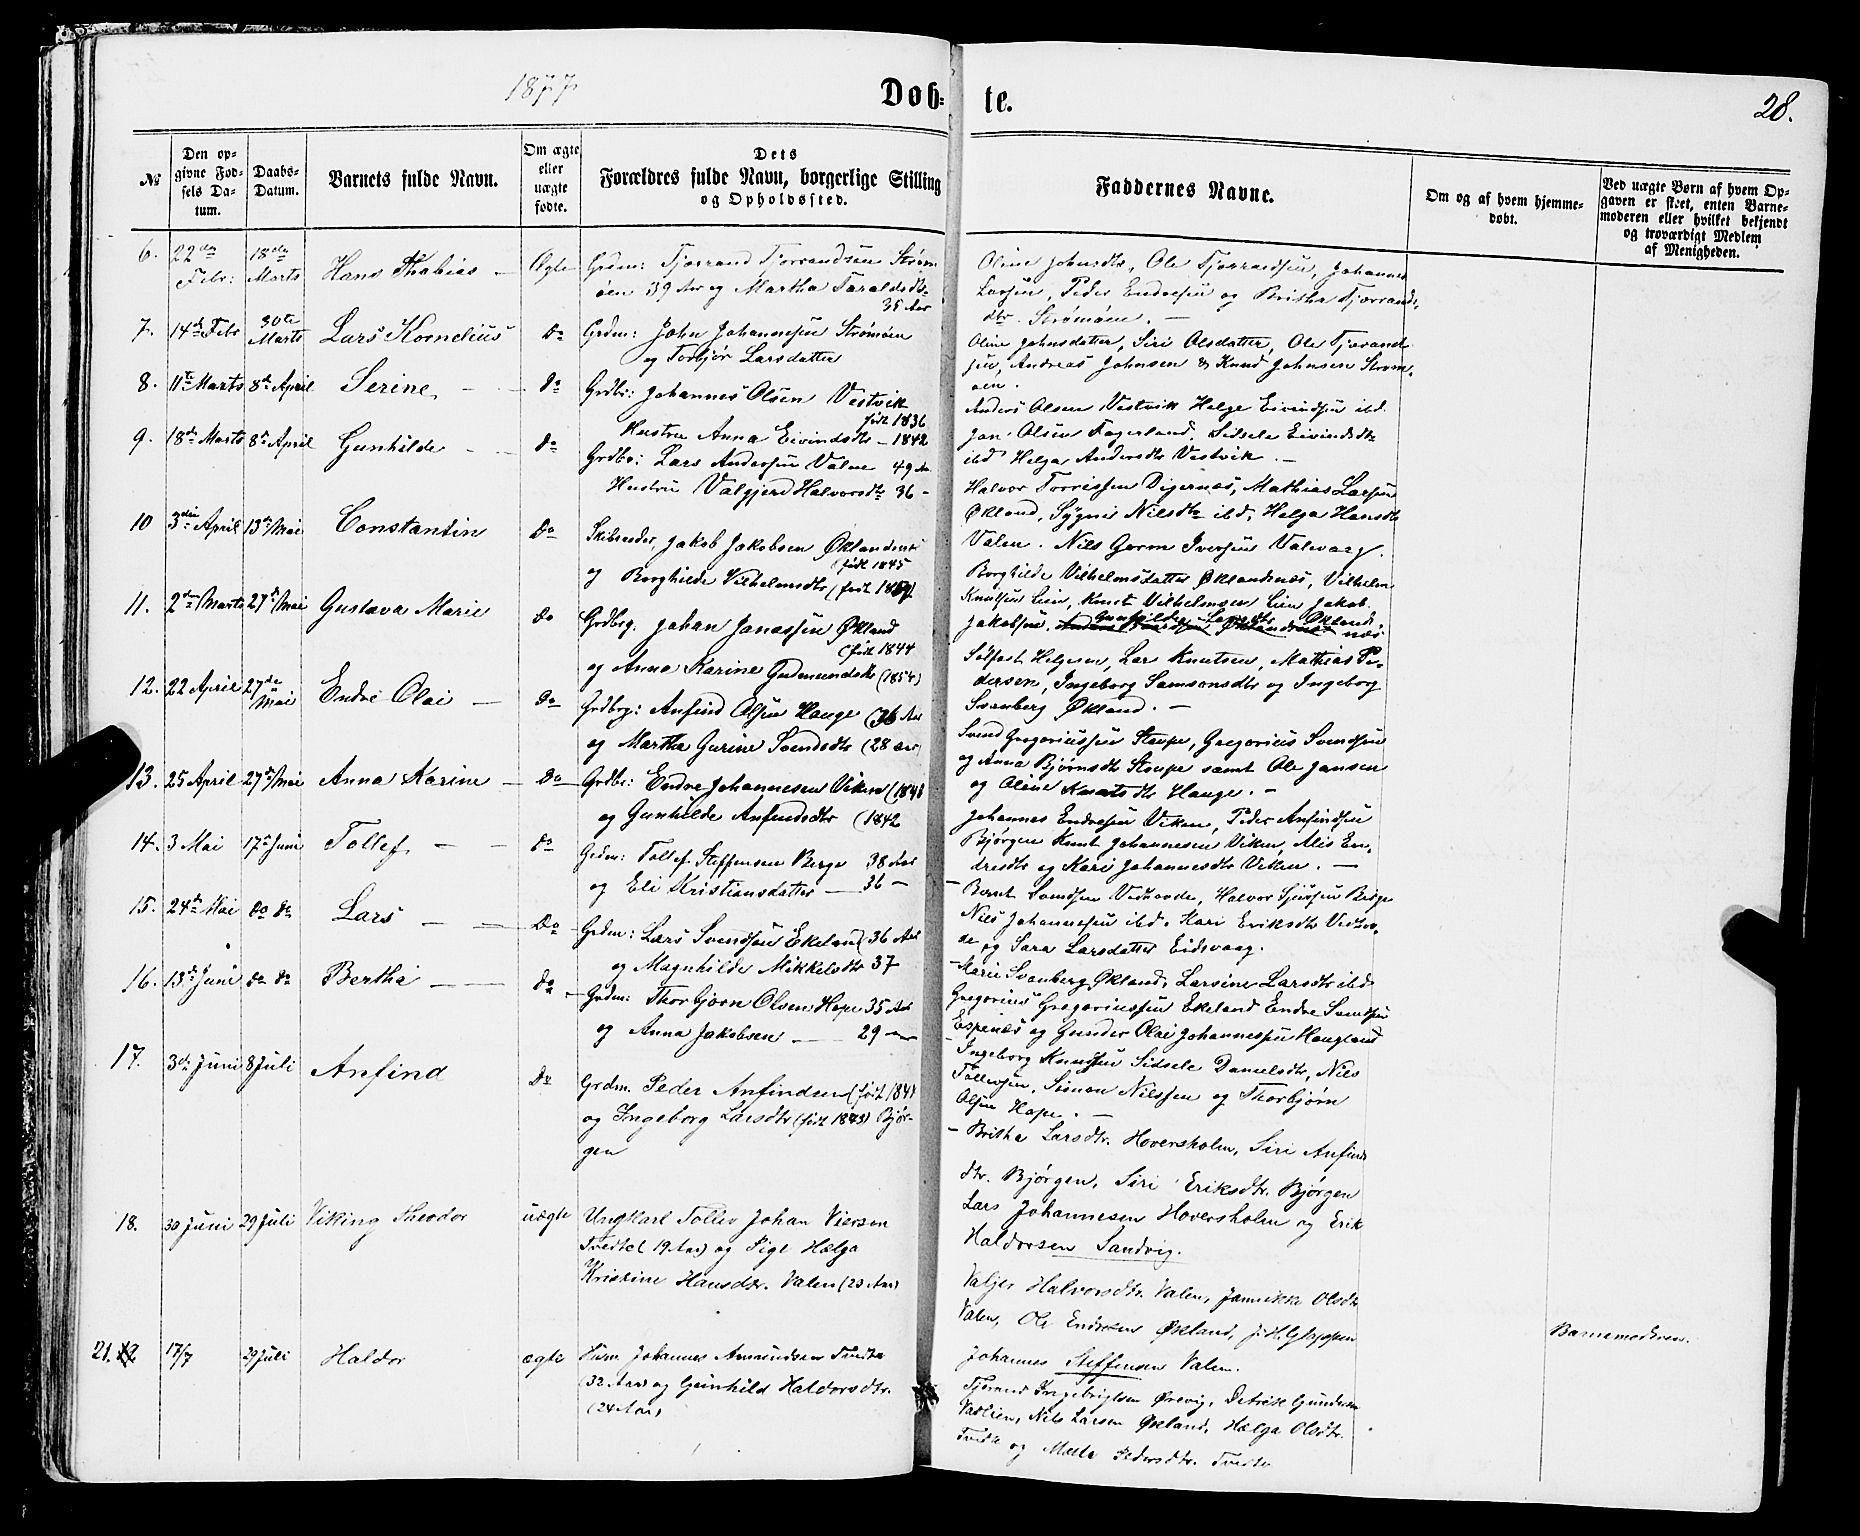 1877
Døb-
te.
28.
№
Den op-
givne Fød-
sels Da-
tum.
Daabs-
Datum.
Barnets fulde Navn.
Om ægte
eller
uægte
fødte.
Dets
Forældres fulde Navn, borgerlige Stilling
og Opholdssted.
Faddernes Navne.
Om og af hvem hjemme-
døbt.
Ved uægte Børn af hvem Op-
gaven er skeet, enten Barne-
moderen eller hvilket bekjendt
og troværdigt Medlem
af Menigheden.
6. 22de Febr: 18de Marts Hans Thobias Ægte Grdm: Tjerrand Tjerrandsen Strøm
øen 39 Aar og Martha Taraldsdtr
35 Aar
Oline Johnsdtr, Ole Tjerrandsen, Johannes
Larsen, Peder Endresen og Britha Tjerrands
dtr. Strømøen.
7. 14de Febr 30te Marts Lars Kornelius Do Grdm: John Johannesen Strømøen
og Torbjør Larsdatter
Oline Johnsdatter, Siri Olsdatter, Ole Tjerand
sen, Andreas Johnsen & Knud Johnsen Strøm-
øen.
8. 11te Marts 8de April Serine do Grdbr: Johannes Olsen Vestvik
født 1836
Hustru Anna Eivindsdtr - 1842
Anders Olsen Vestvik Helge Eivindsen ibd.
Jan Olsen Fagerland, Sidsele Eivindsdtr
ibd Helga Andersdtr Vestvik.
9. 18de Marts 8de April Gunhilde do Grdbr: Lars Andersen Valen 49 Aar
Hustru Valgjerd Halvorsdtr 36 -
Halvor Torrissen Digernæs, Mathias Larsen
Økland, Sygni Nilsdtr ibd, Helga Hansdtr
Valen. Nils Gorm Iversen Valevaag.
10 3die April 13de Mai Constantin Do Skibsreder, Jakob Jakobsen Øklandsnæs
født 1845
og Borghilde Vilhelmsdtr (født
Borghilde Vilhelmsdatter Øklandsnæs, Vilhelm
Knutsen Lien, Knut Vilhelmsen Lien Jakob
Jakobsen, Gunhilde Larsdtr Økland.
næs
11. 2den Marts 27de Mai Gustava Marie do Grdbrg. Johan Janassen Økland
(født 1844
og Anna Karine Gudmundsdtr (1854)
Solfast Helgesen, Lars Knutsen, Mathias Pe-
dersen, Ingeborg Samsonsdtr og Ingeborg
Svanberg Økland.
12. 22 April 27de Mai Endre Olai Do Grdbrg: Anfind Olsen Hauge (36 Aar
og Martha Gurine Svendsdtr (28 aar)
Svend Gregoriussen Stoupe, Gregorius Svendsen
og Anna Bjørnsdtr Stoupe samt Ole Jansen
og Oline Knutsdtr Hauge.
13. 25 April 27de Mai Anna Karine Do Grdbr: Endre Johannesen Viken (1841
og Gunhilde Anfindsdtr (1842
Johannes Endresen Viken, Peder Anfindsen
Bjørgen Knut Johannesen Viken, Alis En-
dresdtr og Kari Johannesdtr Viken.
14. 3 Mai 17de Juni Tollef do Grdm: Tollef Steffensen Berge 38 Aar
og Eli Kristiansdatter 36 -
Bernt Svendsen Vidsvode, Halvor Sjursen Berge
Nils Johannesen ibd. Kari Eriksdtr Vidsvo-
de og Sara Larsdatter Eidsvaag.
15. 24de Mai do do Lars Do Grdm: Lars Svendsen Ekeland (36 Aar
og Magnhilde Mikkelsdtr 37
Marie Svanberg Økland, Larsine Larsdtr ibd
Gregorius Gregoriussen Ekeland Endre Svendsen
Espenæs og Gunder Olai Johannessen Haugland
16. 13de Juni do do Bertha do Grdm: Thorbjørn Olsen Hope 35 Aar
og Anna Jakobsen 29 -
Ingeborg Knudsen Sidsele Danielsdtr, Nils
Tollevsen, Simon Nilssen og Thorbjørn
Olsen Hope.
17. 3de Juni 8 Juli Anfind Do Grdm. Peder Anfindsen (født 1841)
og Ingeborg Larsdtr (født 1843) Bjør-
gen
Britha Larsdtr. Hoversholm, Siri Anfinds
dtr. Bjørgen, Siri Eriksdtr. Bjørgen
Lars Johannesen Hoversholm og Erik
Haldorsen Sandvig.
18. 30 Juni 29 Juli Viking Theodor uægte Ungkarl Tollev Johan Viersen
Tvedte (19 Aar) og Pige Hælga
Kristine Hansdtr. Valen (23 Aar)
Valjer Halvorsdtr. Valen, Jannikke Olsdtr
Valen, Ole Endresen Økland, J. H. Gloppen
Johannes Steffensen Valen.
Barnemoderen.
21. 17/7 29 Juli Haldor ægte Husm. Johannes Amundsen Tvedte
(32 Aar) og Gunhild Haldorsdtr.
(24 Aar)
Tjerand Ingebrigtsen Ørevig, Detrik Gundersen
Vadlien, Nils Larsen Økland, Hælga Olsdtr.
Tvedte og Malle Pedersdtr. Tvedte